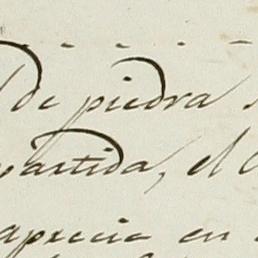 de piedra
partida, el
aprecia en